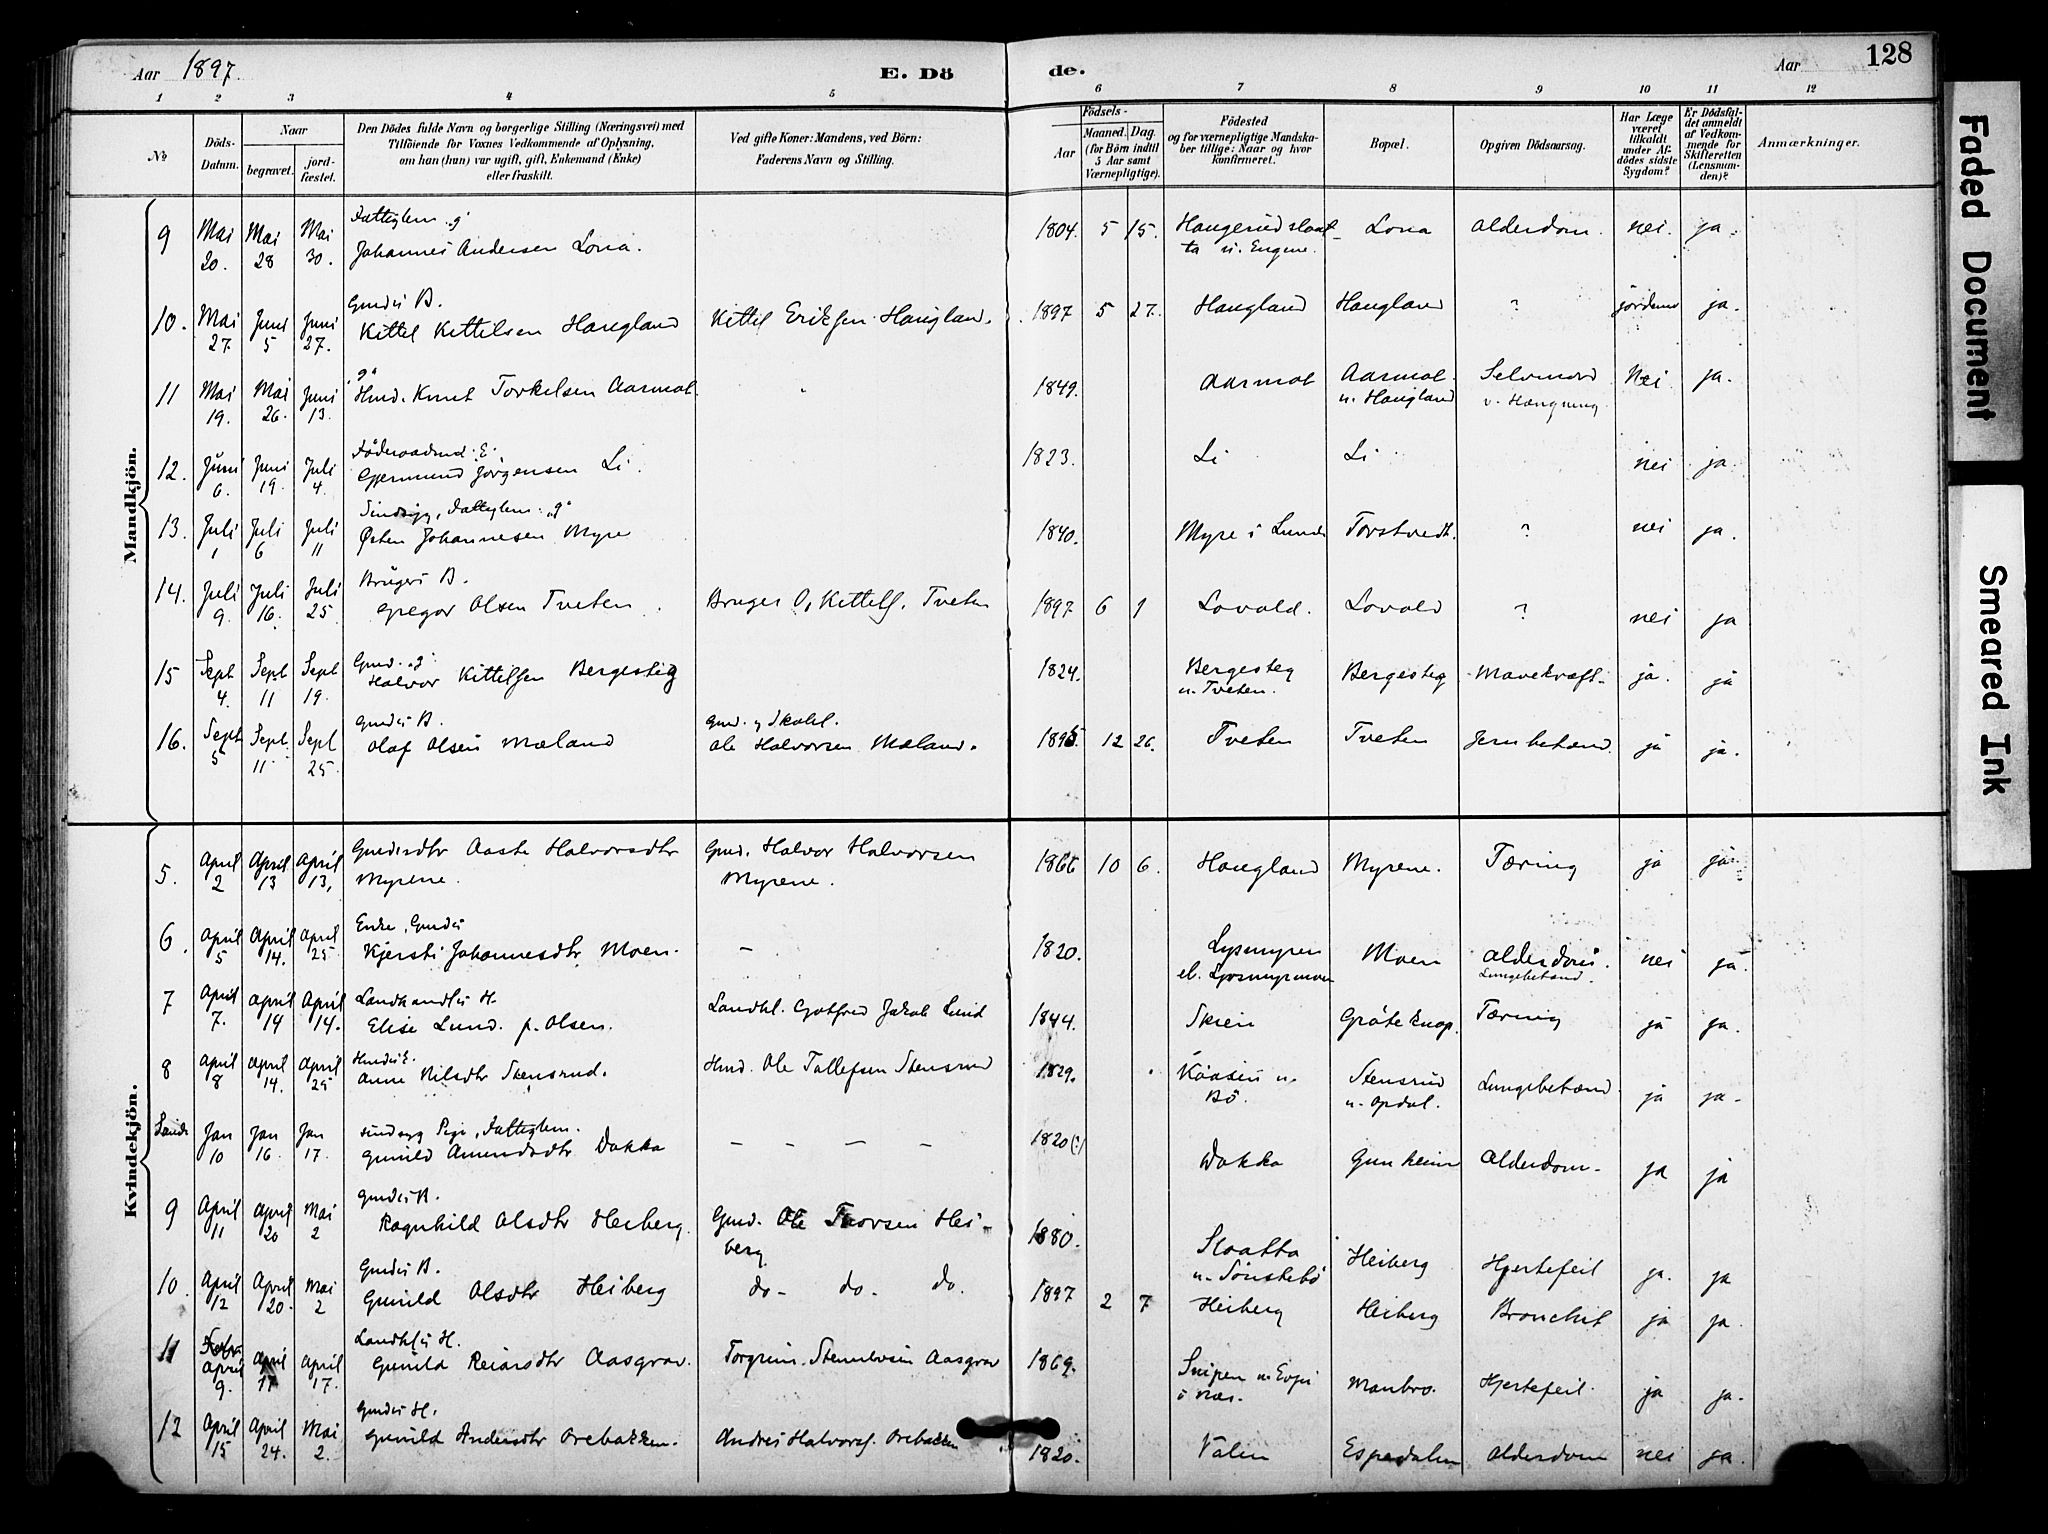 Aar 1897. E. Dö de. Aar 128
1 2 3 4 5 6 7 8 9 10 11 12
No Döds-Datum. Naar begravet. jord-fæstet. Den Dödes fulde Navn og borgerlige Stilling (Næringsvei) med Tilföiende for Voxnes Vedkommende af Oplysning, om han (hun) var ugift, gift, Enkemand (Enke) eller fraskilt. Ved gifte Koner: Mandens, ved Börn: Faderens Navn og Stilling. Födsels- Aar Maaned. Dag. (for Börn indtil 5 Aar samt Værnepligtige). Födested og for værnepligtige Mandskaber tillige: Naar og hvor konfirmeret. Bopæl. Opgiven Dödsaarsag. Har Læge været tilkaldt under Afdödes sidste Sygdom? Er Dödsfaldet anmeldt af Vedkommende for Skifteretten (Lensmanden)? Anmærkninger.
Mandkjön.
9 Mai 20. Mai 28 Mai 30. Fattiglem "g" Johannes Andersen Lona. 1804. 5 15. Haugerudslaatta u. Lona Alderdom. nei. ja.
10. Mai 27. Juni 5 Juni 27. Gmds B. Kittel Kittelsen Haugland Kittil Eriksen Haugland. 1897 5 27. Haugland Haugland ? ja.
11 Mai 19. Mai 26. Juni 13. "g" Hmd. Knut Torkelsen Aarmot. 1849. Aarmot Aarmot u. Haugland Selvmord v. Hængning Nei ja.
12. Juni 6. Juni 19. Juli 4. Föderaadmd. E. Gjermund Jörgensen Li. 1823. Li Li nei ja.
13. Juli 1 Juli 6 Juli 11 Sindssyg, Fattiglem. "g" Østen Johannesen Myre 1840. Myre i Lunde Torstvedt. ? nei ja.
14. Juli 9. Juli 16. Juli 25. Brugers B. Gregar Olsen Tveten. Bruger O. Kittels. Tveten 1897 6 1 Lovald. Lovald ? nei ja
15 Sept 4. Sept 11 Sept 19. Gmd. "g" Halvor Kittelsen Bergesteg 1824. Bergesteg u. Tveten. Bergesteg Mavekræft. ja. ja
16. Sept 5 Sept. 11 Sept 25. Gmds B. Olaf Olsen Mæland Gmd. og Skohl. Ole Halvorsen Mæland. 1895. 12 26. Tveten Tveten Jernbetænd. ja ja.
Kvindekjön.
5. April 2 April 13 April 13, Gmdsdtr Aaste Halvorsdtr Myrene. Gmd. Halvor Halvorsen Myrene. 1866 10 6. Haugland Myrene. Tæring ja ja.
6. April 5 April 14. April 25 Enke, Gmds Kjersti Johannesdtr Moen. – 1820. Lysmyren el. Lysmyrmoen Moen Alderdom. Lungebetænd. nei ja.
7 April 7. April 14 April 14. Landhandls H. Elise Lund. f. Olsen. Landhl. Gotfred Jakob Lund 1844. Skien Gråteknap. Tæring ja ja.
8 April 8 April 14. April 25 Hmds E. Anne Nilsdtr Stensrud. Hmd. Ole Tallefsen Stensrud 1829. Kaasen u. Bö. Stensrud u. Opdal. Lungebetænd. ja ja.
Jan 10 Jan 16. Jan 17. sindssyg Pige, Fattiglem. Gunild Amundsdtr Dokka – – – – 1820(?) Dokka Gunheim Alderdom. ja ja
9 April 11 April 20 Mai 2 Gmds B. Ragnhild Olsdtr Heiberg. Gmd. Ole Thorsen Heiberg 1880. Slaatta u. Sönstebö Heiberg Hjertefeil ja. ja
10. April 12 April 20. Mai 2 Gmds B. Gunild Olsdtr Heiberg do. do. do. 1897 2 7 Heiberg Heiberg Bronchit ja ja.
11 April 9. April 17 April 17. Landhls H. Gunild Reiarsdtr Aasgrav. Torgrim Aasgrav 1869. Snipen i Næs. Manbro. Hjertefeil. ja ja.
12 April 15 April 24. Mai 2. Gmds H. Gunild Andersdtr Orebakken. Andres Halvors. Orebakken 1820. Valen Espedalen Alderdom nei ja.
Faded Document
Smeared Ink